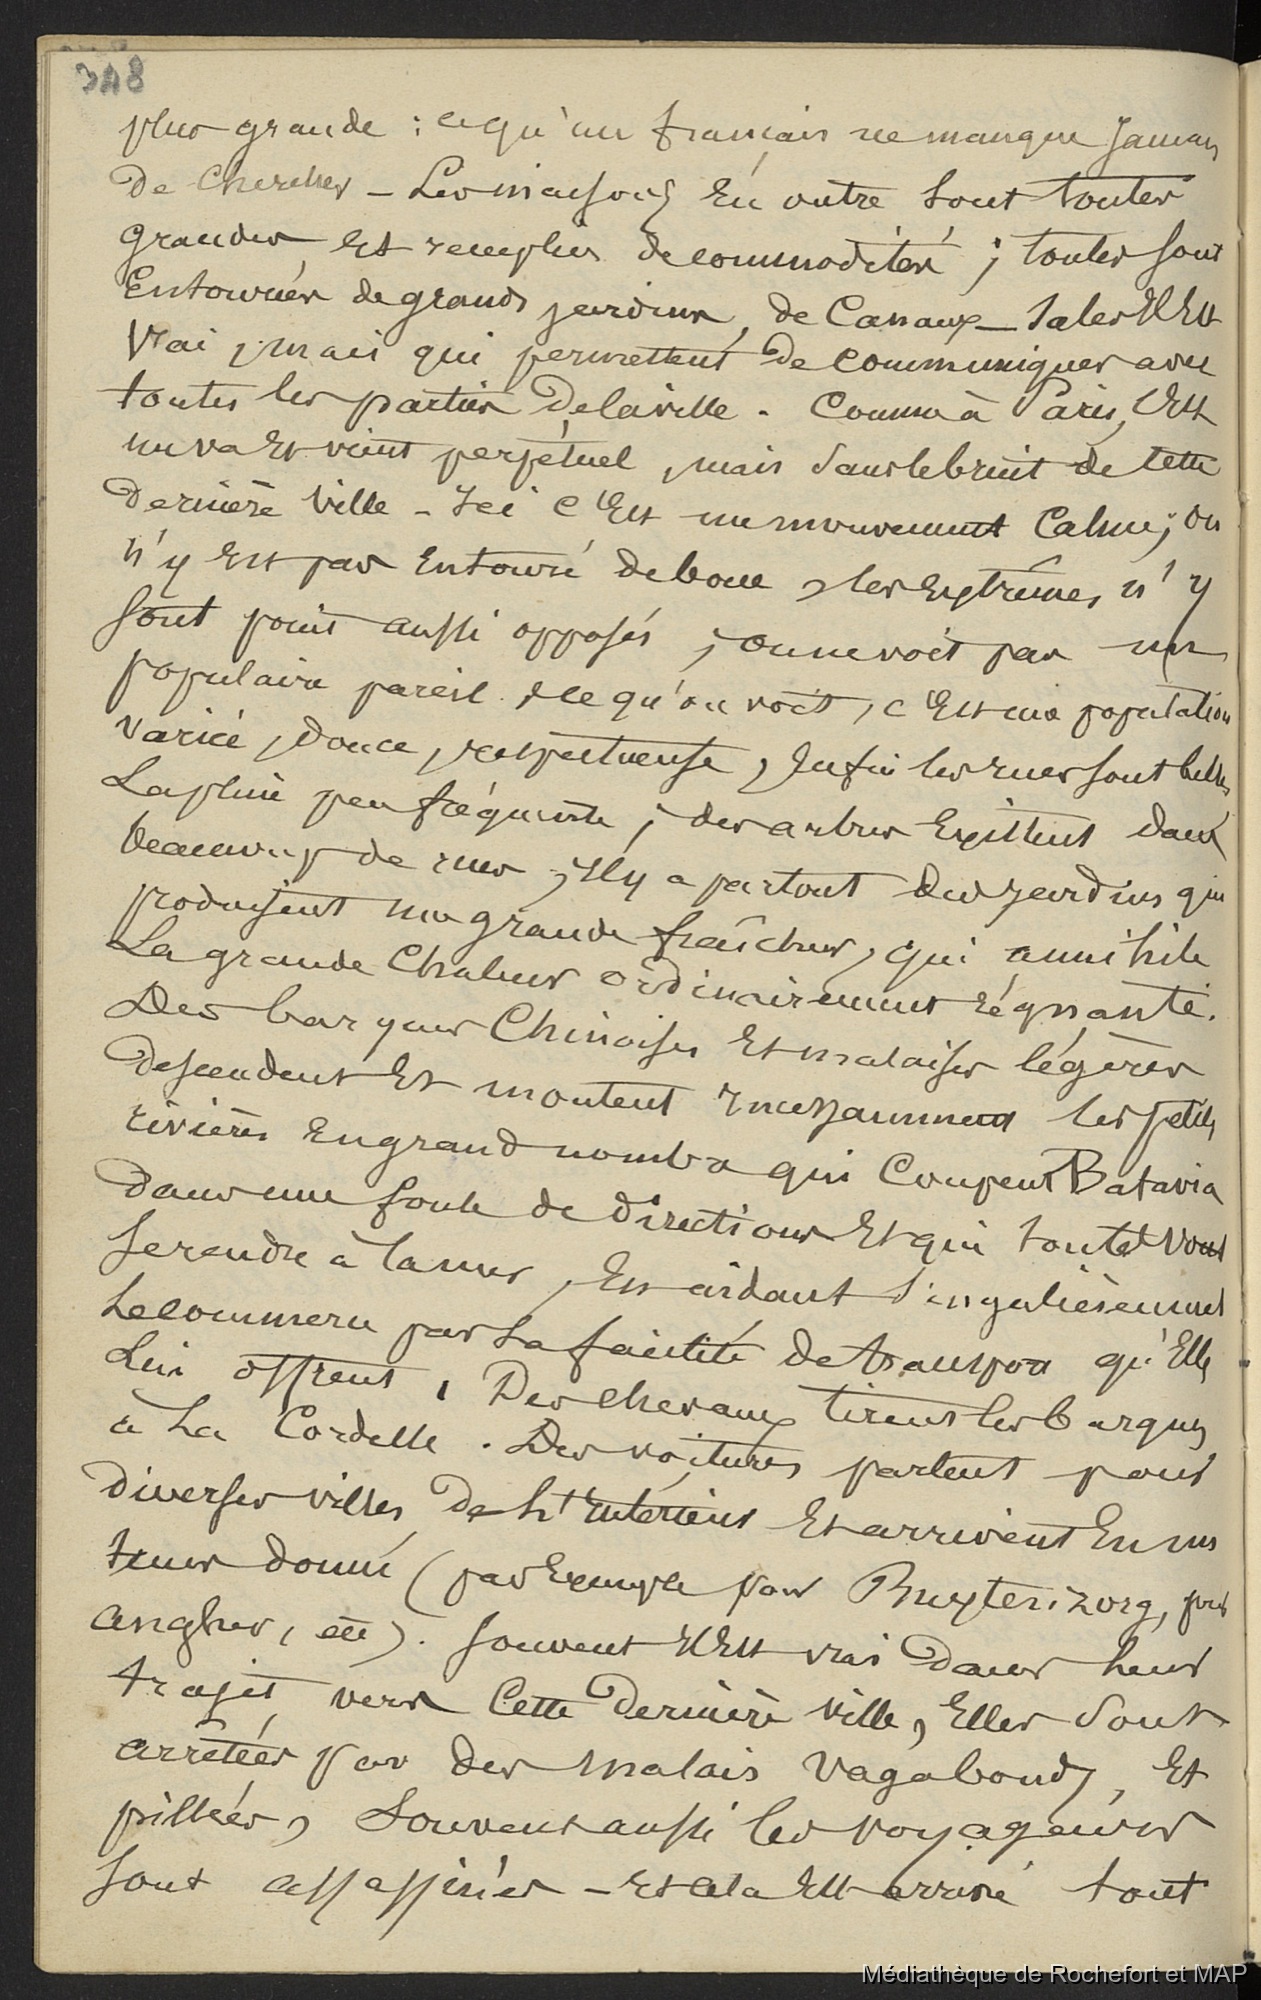 348
plus grande : ce qu'un français ne manque jamais
de chercher – Les maisons En outre sont toutes
grandes Et remplies de commodités ; toutes sont
Entourées de grands jardins, de Canaux – sales Il Est
Vrai, mais qui permettent de communiquer avec
toutes les parties de la ville. Comme à Paris, C'Est
un va Et vient perpétuel, mais sans le bruit de cette
dernière Ville – Ici c'Est un mouvement Calme ; on
n'y Est pas Entouré de boue, les Extrêmes n'y
sont point aussi opposés ; on ne voit pas un
populaire pareil. Ce qu'on voit, c'Est une population
Variée, douce, respectueuse, Enfin les rues sont belles
La pluie peu fréquente ; des arbres Existent dans
beaucoup de rues, Il y a partout des jardins qui
produisent une grande fraîcheur, qui annihile
La grande Chaleur ordinairement régnante.
Des barques Chinoises Et malaises légères
descendent Et montent Incessamment les petites
rivières En grand nombre qui Coupent Batavia
dans une foule de directions Et qui toutes vont
se rendre à la mer, En aidant singulièrement
Le commerce par La facilité de transport qu'Elles
Lui offrent, Des chevaux tirent les barques
à La Cordelle. Des voitures partent pour
diverses villes de L'Intérieur Et arrivent En un
temps donné (par Exemple pour Buytenzorg, pour
Angher, etc). Souvent Il Est vrai dans leur
trajet vers Cette dernière ville, Elles sont
arrêtées par des malais Vagabonds, Et
pillées, Souvent aussi les voyageurs
sont assassinés – Et cela Est arrivé tout
Médiathèque de Rochefort et MAP